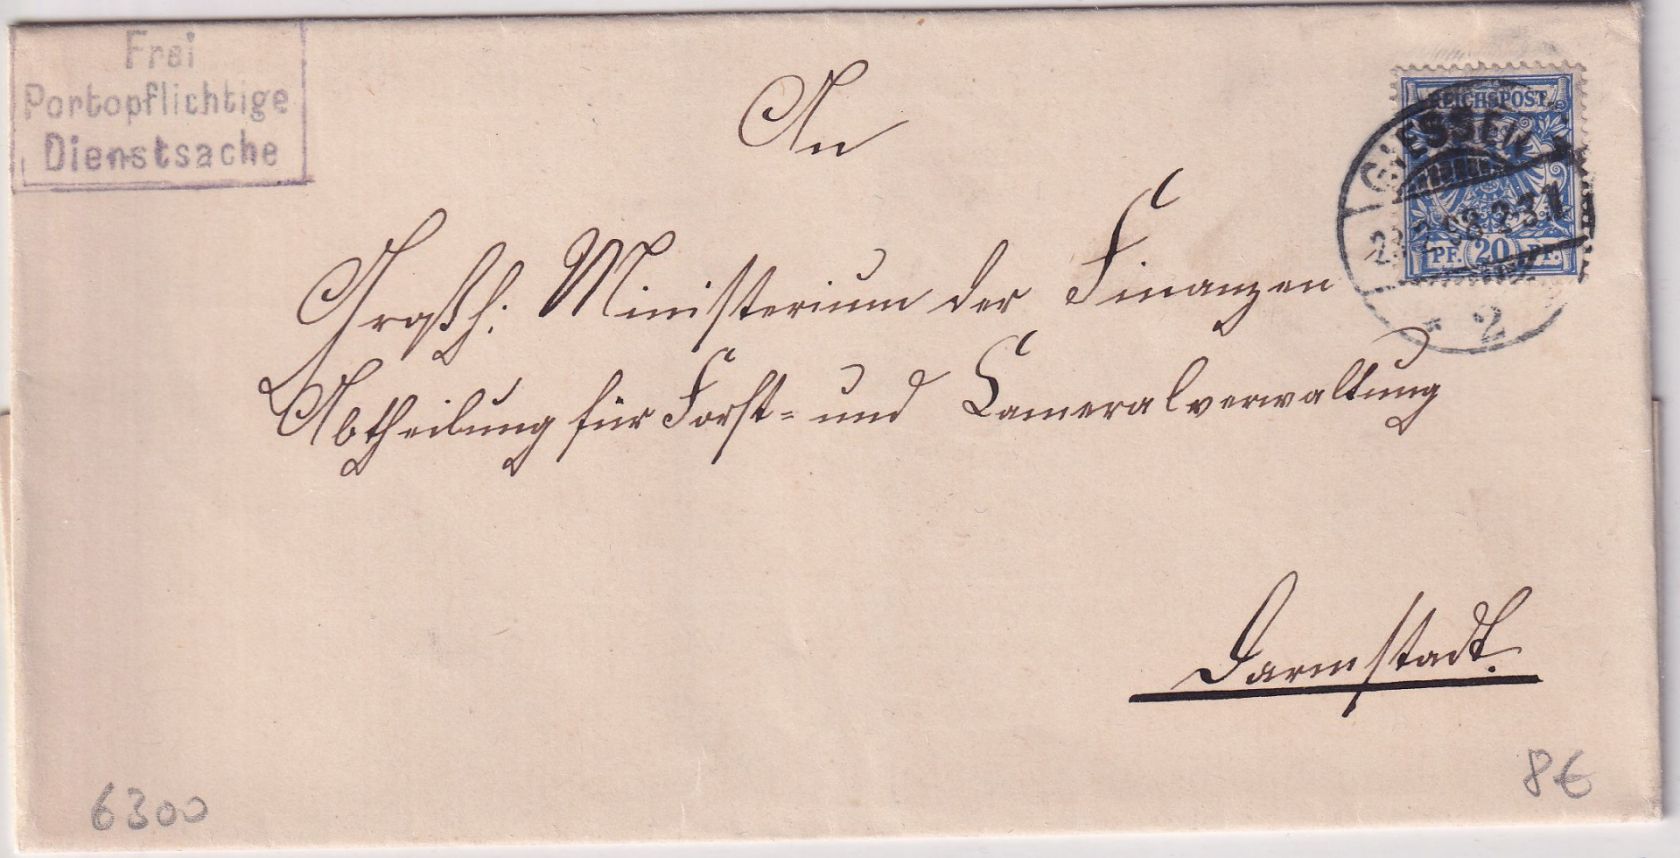 Frei
Portopflichtige
Dienstsache
An
Großh: Ministerium der Finanzen
Abtheilung für Forst- und Cameralverwaltung
Darmstadt.
REICHSPOST
PF. 20 PF.
GIESSEN
* 2
6300
8€